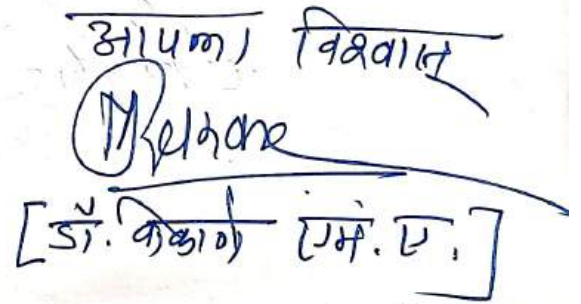 आपला विश्वासू
[डॉ. कोकाणे एम. ए.]